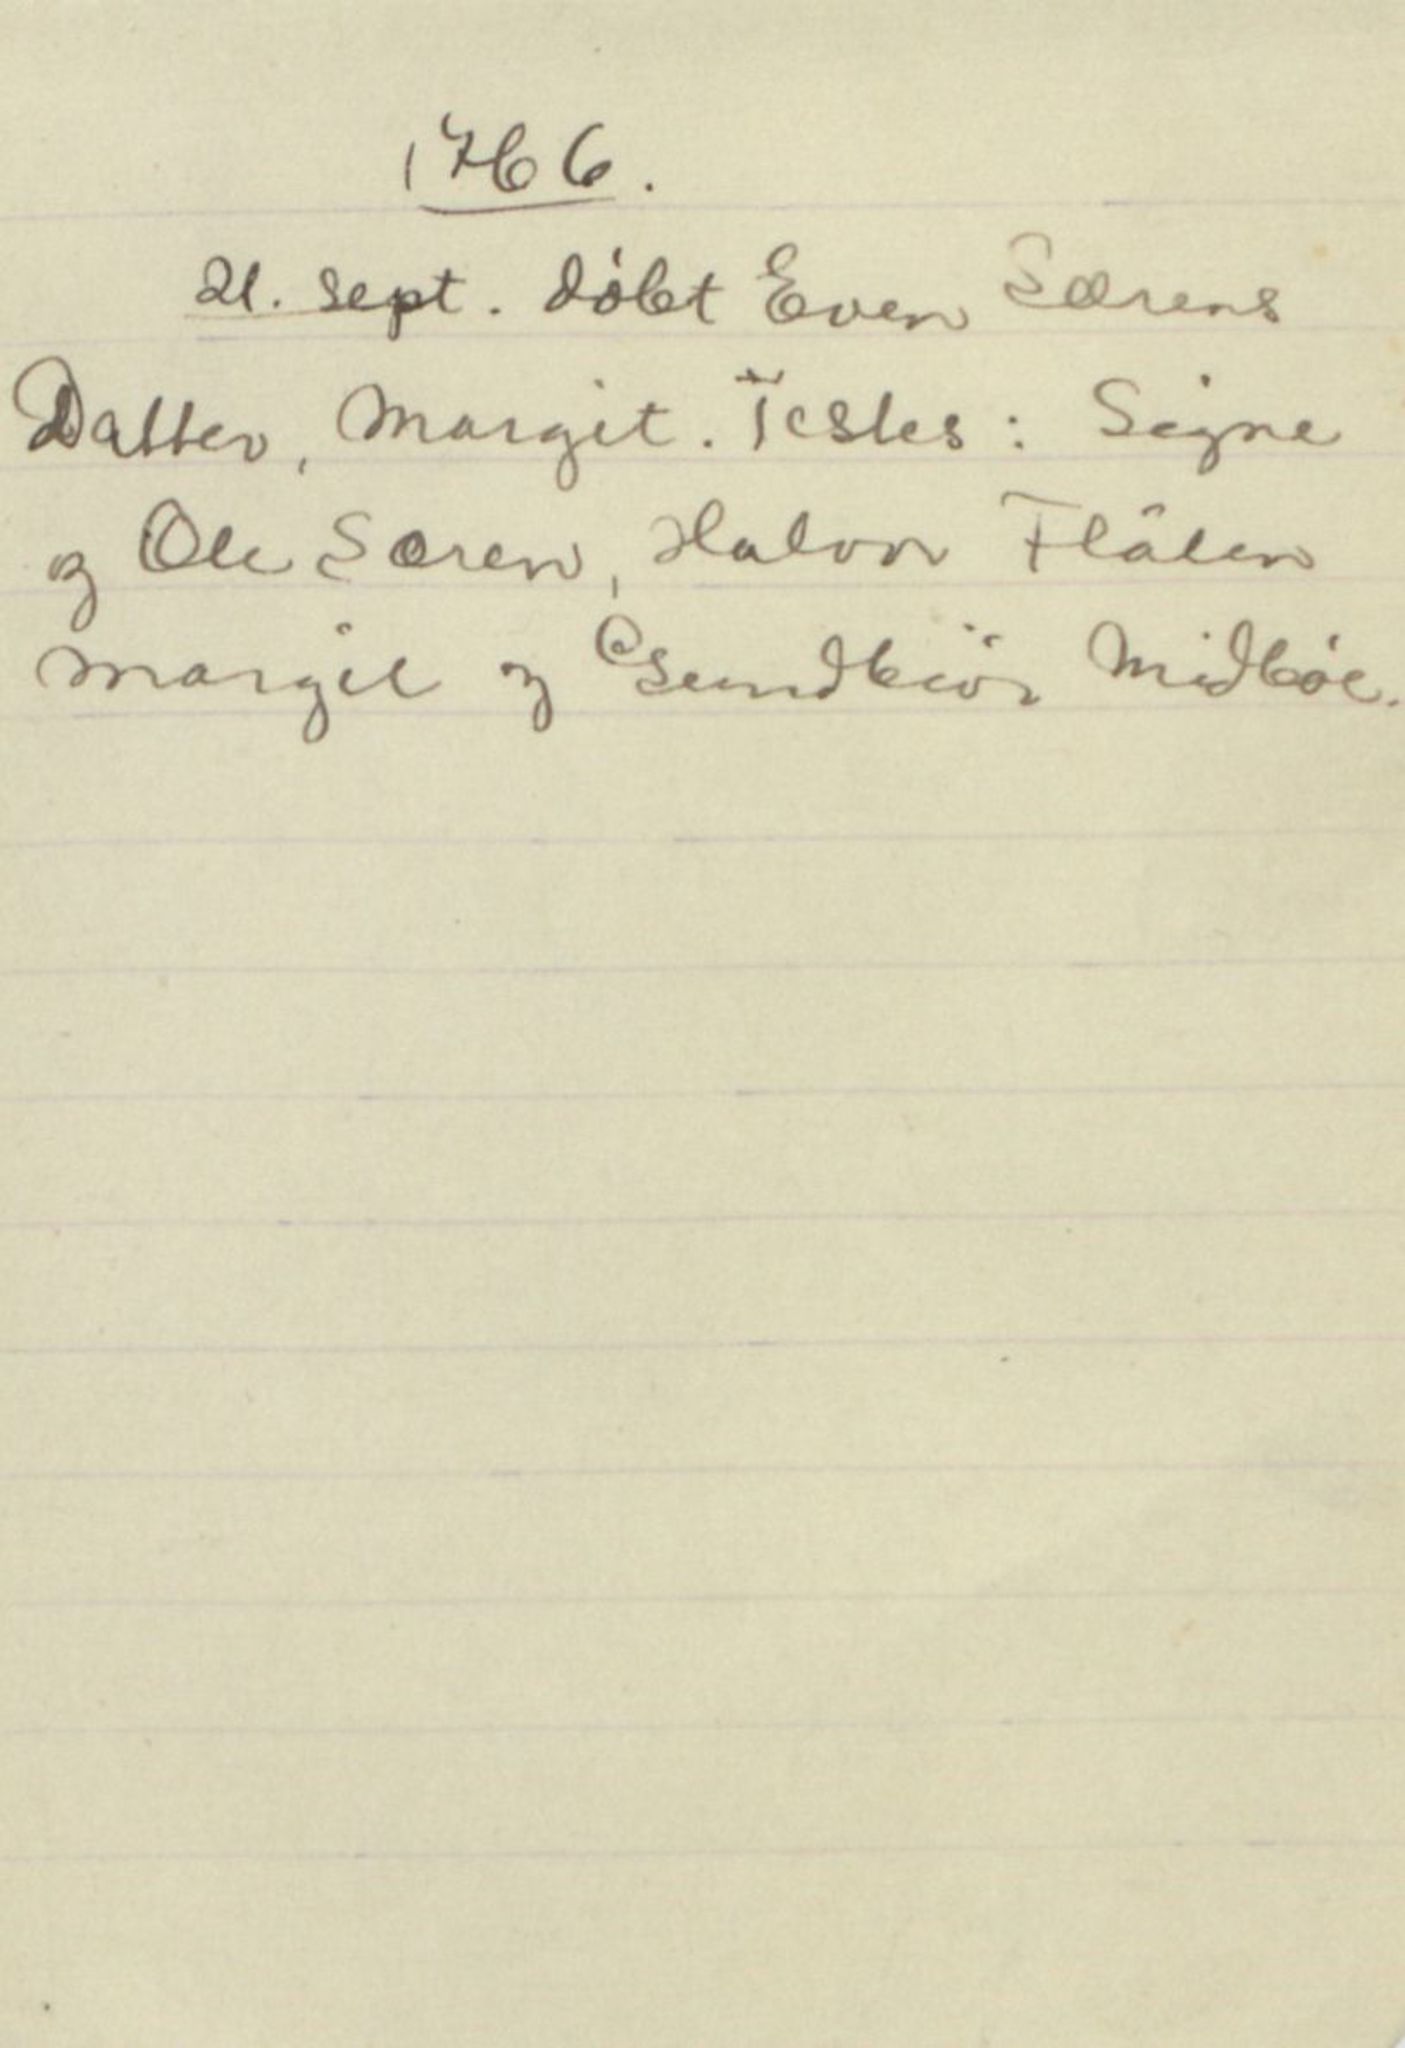 1766.
21. sept. döbt Even Særens
Datter, Margit. Testes: Signe
og Ole Særen, Halvor Flåten
Margit og Gundbiör Midböe.